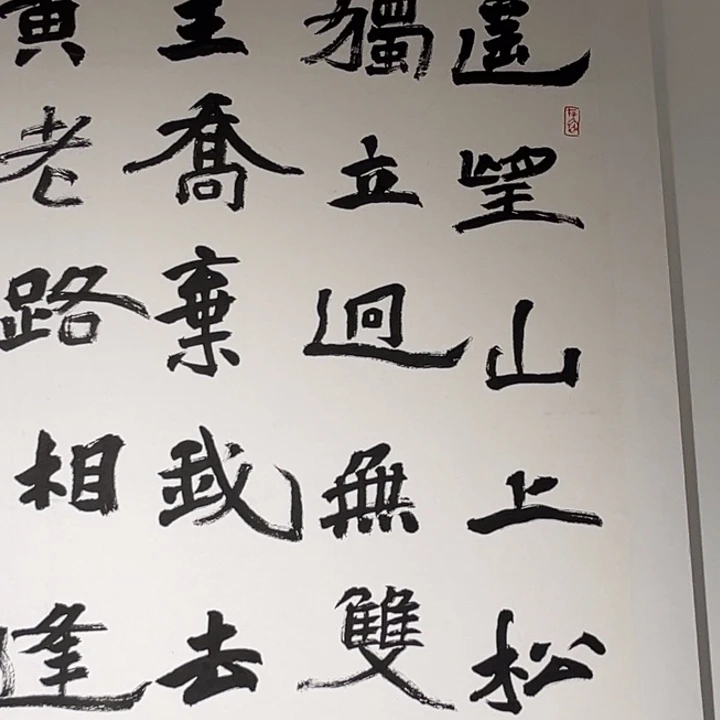 遙望山上松
獨立迥無雙
王喬棄我去
黃老路相逢